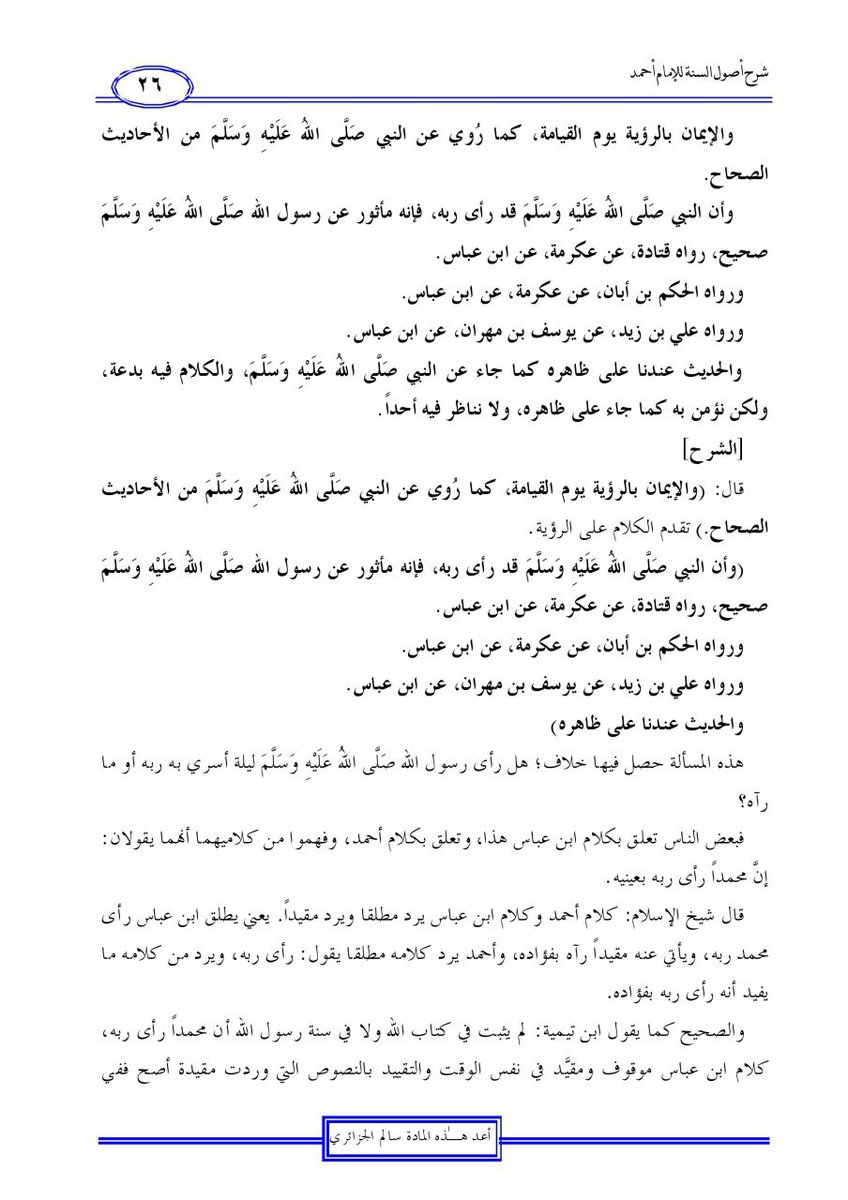 شرح أصول السنة للإمام أحمد
٢٦
والإيمان بالرؤية يوم القيامة، كما رُوي عن النبي صَلَّى اللهُ عَلَيْهِ وَسَلَّمَ من الأحاديث
الصحاح.
وأن النبي صَلَّى اللهُ عَلَيْهِ وَسَلَّمَ قد رأى ربه، فإنه مأثور عن رسول الله صَلَّى اللهُ عَلَيْهِ وَسَلَّمَ
صحيح، رواه قتادة، عن عكرمة، عن ابن عباس.
ورواه الحكم بن أبان، عن عكرمة، عن ابن عباس.
ورواه علي بن زيد، عن يوسف بن مهران، عن ابن عباس.
والحديث عندنا على ظاهره كما جاء عن النبي صَلَّى اللهُ عَلَيْهِ وَسَلَّمَ، والكلام فيه بدعة،
ولكن نؤمن به كما جاء على ظاهره، ولا نناظر فيه أحداً.
[الشرح]
قال: (والإيمان بالرؤية يوم القيامة، كما رُوي عن النبي صَلَّى اللهُ عَلَيْهِ وَسَلَّمَ من الأحاديث
الصحاح.) تقدم الكلام على الرؤية.
(وأن النبي صَلَّى اللهُ عَلَيْهِ وَسَلَّمَ قد رأى ربه، فإنه مأثور عن رسول الله صَلَّى اللهُ عَلَيْهِ وَسَلَّمَ
صحيح، رواه قتادة، عن عكرمة، عن ابن عباس.
ورواه الحكم بن أبان، عن عكرمة، عن ابن عباس.
ورواه علي بن زيد، عن يوسف بن مهران، عن ابن عباس.
والحديث عندنا على ظاهره)
هذه المسألة حصل فيها خلاف؛ هل رأى رسول الله صَلَّى اللهُ عَلَيْهِ وَسَلَّمَ ليلة أسري به ربه أو ما
رآه؟
فبعض الناس تعلق بكلام ابن عباس هذا، وتعلق بكلام أحمد، وفهموا من كلاميهما أنهما يقولان:
إنَّ محمداً رأى ربه بعينيه.
قال شيخ الإسلام: كلام أحمد وكلام ابن عباس يرد مطلقا ويرد مقيداً. يعني يطلق ابن عباس رأى
محمد ربه، ويأتي عنه مقيداً رآه بفؤاده، وأحمد يرد كلامه مطلقا يقول: رأى ربه، ويرد من كلامه ما
يفيد أنه رأى ربه بفؤاده.
والصحيح كما يقول ابن تيمية: لم يثبت في كتاب الله ولا في سنة رسول الله أن محمداً رأى ربه،
كلام ابن عباس موقوف ومقيَّد في نفس الوقت والتقييد بالنصوص التي وردت مقيدة أصح ففي
أعد هـــٰذه المادة سالم الجزائري